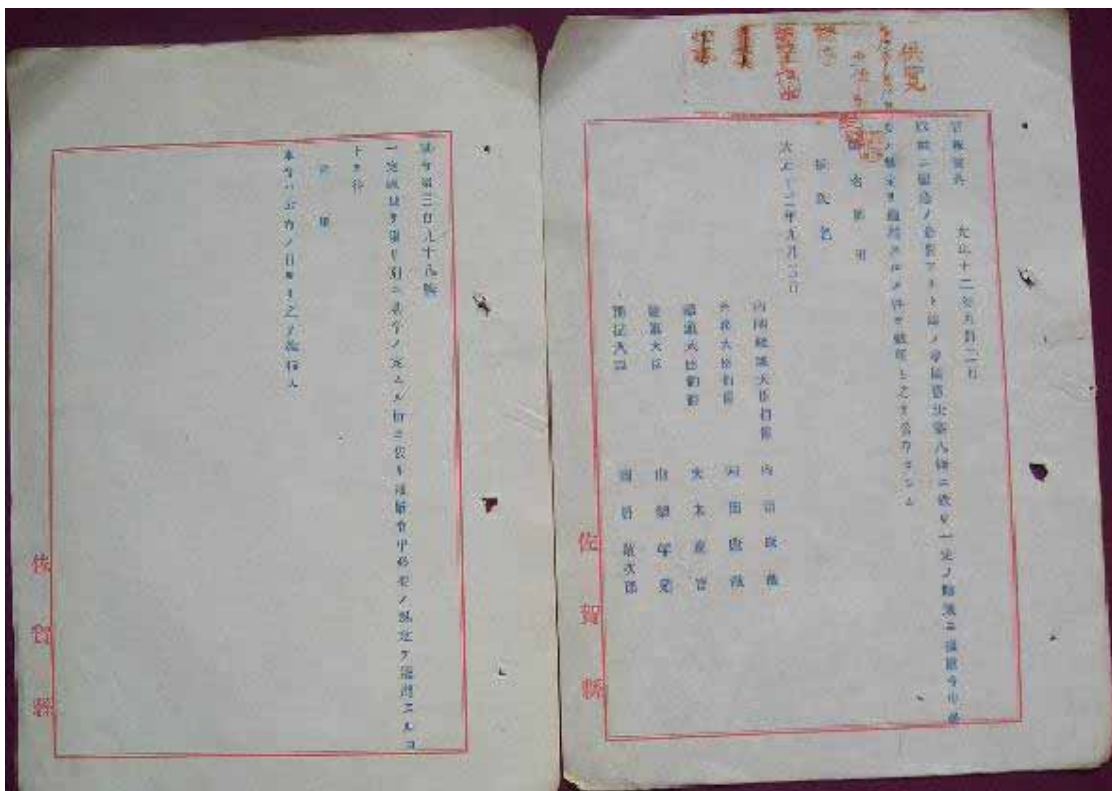 供覧
官報號外 大正十二年九月二日
緊急ノ必要アリト認メ帝國憲法第八條ニ依リ一定ノ地域ニ戒嚴令中必
要ノ規定ヲ適用スルノ件ヲ裁可シ之ヲ公布セシム
御名御璽
攝政名
大正十二年九月二日
内閣總理大臣伯爵 内田康哉
外務大臣伯爵 内田康哉
鐵道大臣伯爵 大木遠吉
大臣 山梨半造
大臣 岡野敬次郎
佐賀縣
勅令第三百九十八號
一定ノ地域ヲ限リ別ニ勅令ノ定ムル所ニ依リ戒嚴令中必要ノ規定ヲ適用スルコ
トヲ得
附則
本令ハ公布ノ日ヨリ之ヲ施行ス
佐賀縣